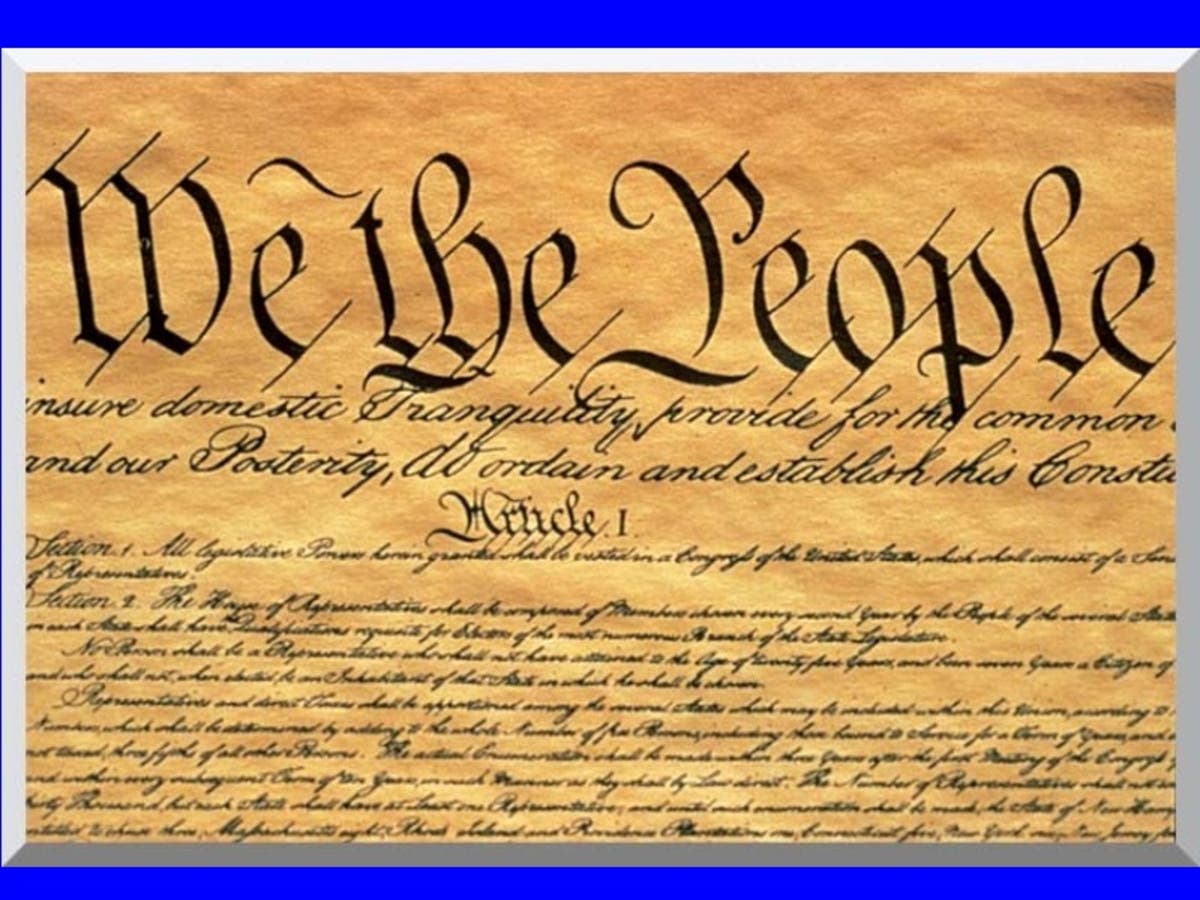 We the People
insure domestic Tranquility, provide for the common
and our Posterity, do ordain and establish this Constitu
Article. I.
Section. 1. All legislative Powers herein granted shall be vested in a Congress of the United States, which shall consist of a Sena
of Representatives.
Section. 2. The House of Representatives shall be composed of Members chosen every second Year by the People of the several States
in each State shall have Qualifications requisite for Electors of the most numerous Branch of the State Legislature.
No Person shall be a Representative who shall not have attained to the Age of twenty five Years, and been seven Years a Citizen of
and who shall not, when elected, be an Inhabitant of that State in which he shall be chosen.
Representatives and direct Taxes shall be apportioned among the several States which may be included within this Union, according to
Numbers, which shall be determined by adding to the whole Number of free Persons, including those bound to Service for a Term of Years, and
not taxed, three fifths of all other Persons. The actual Enumeration shall be made within three Years after the first Meeting of the Congress
and within every subsequent Term of ten Years, in such Manner as they shall by Law direct. The Number of Representatives shall not
thirty Thousand, but each State shall have at Least one Representative; and until such enumeration shall be made, the State of New Hamp
entitled to chuse three, Massachusetts eight, Rhode Island and Providence Plantations one, Connecticut five, New York six, New Jersey